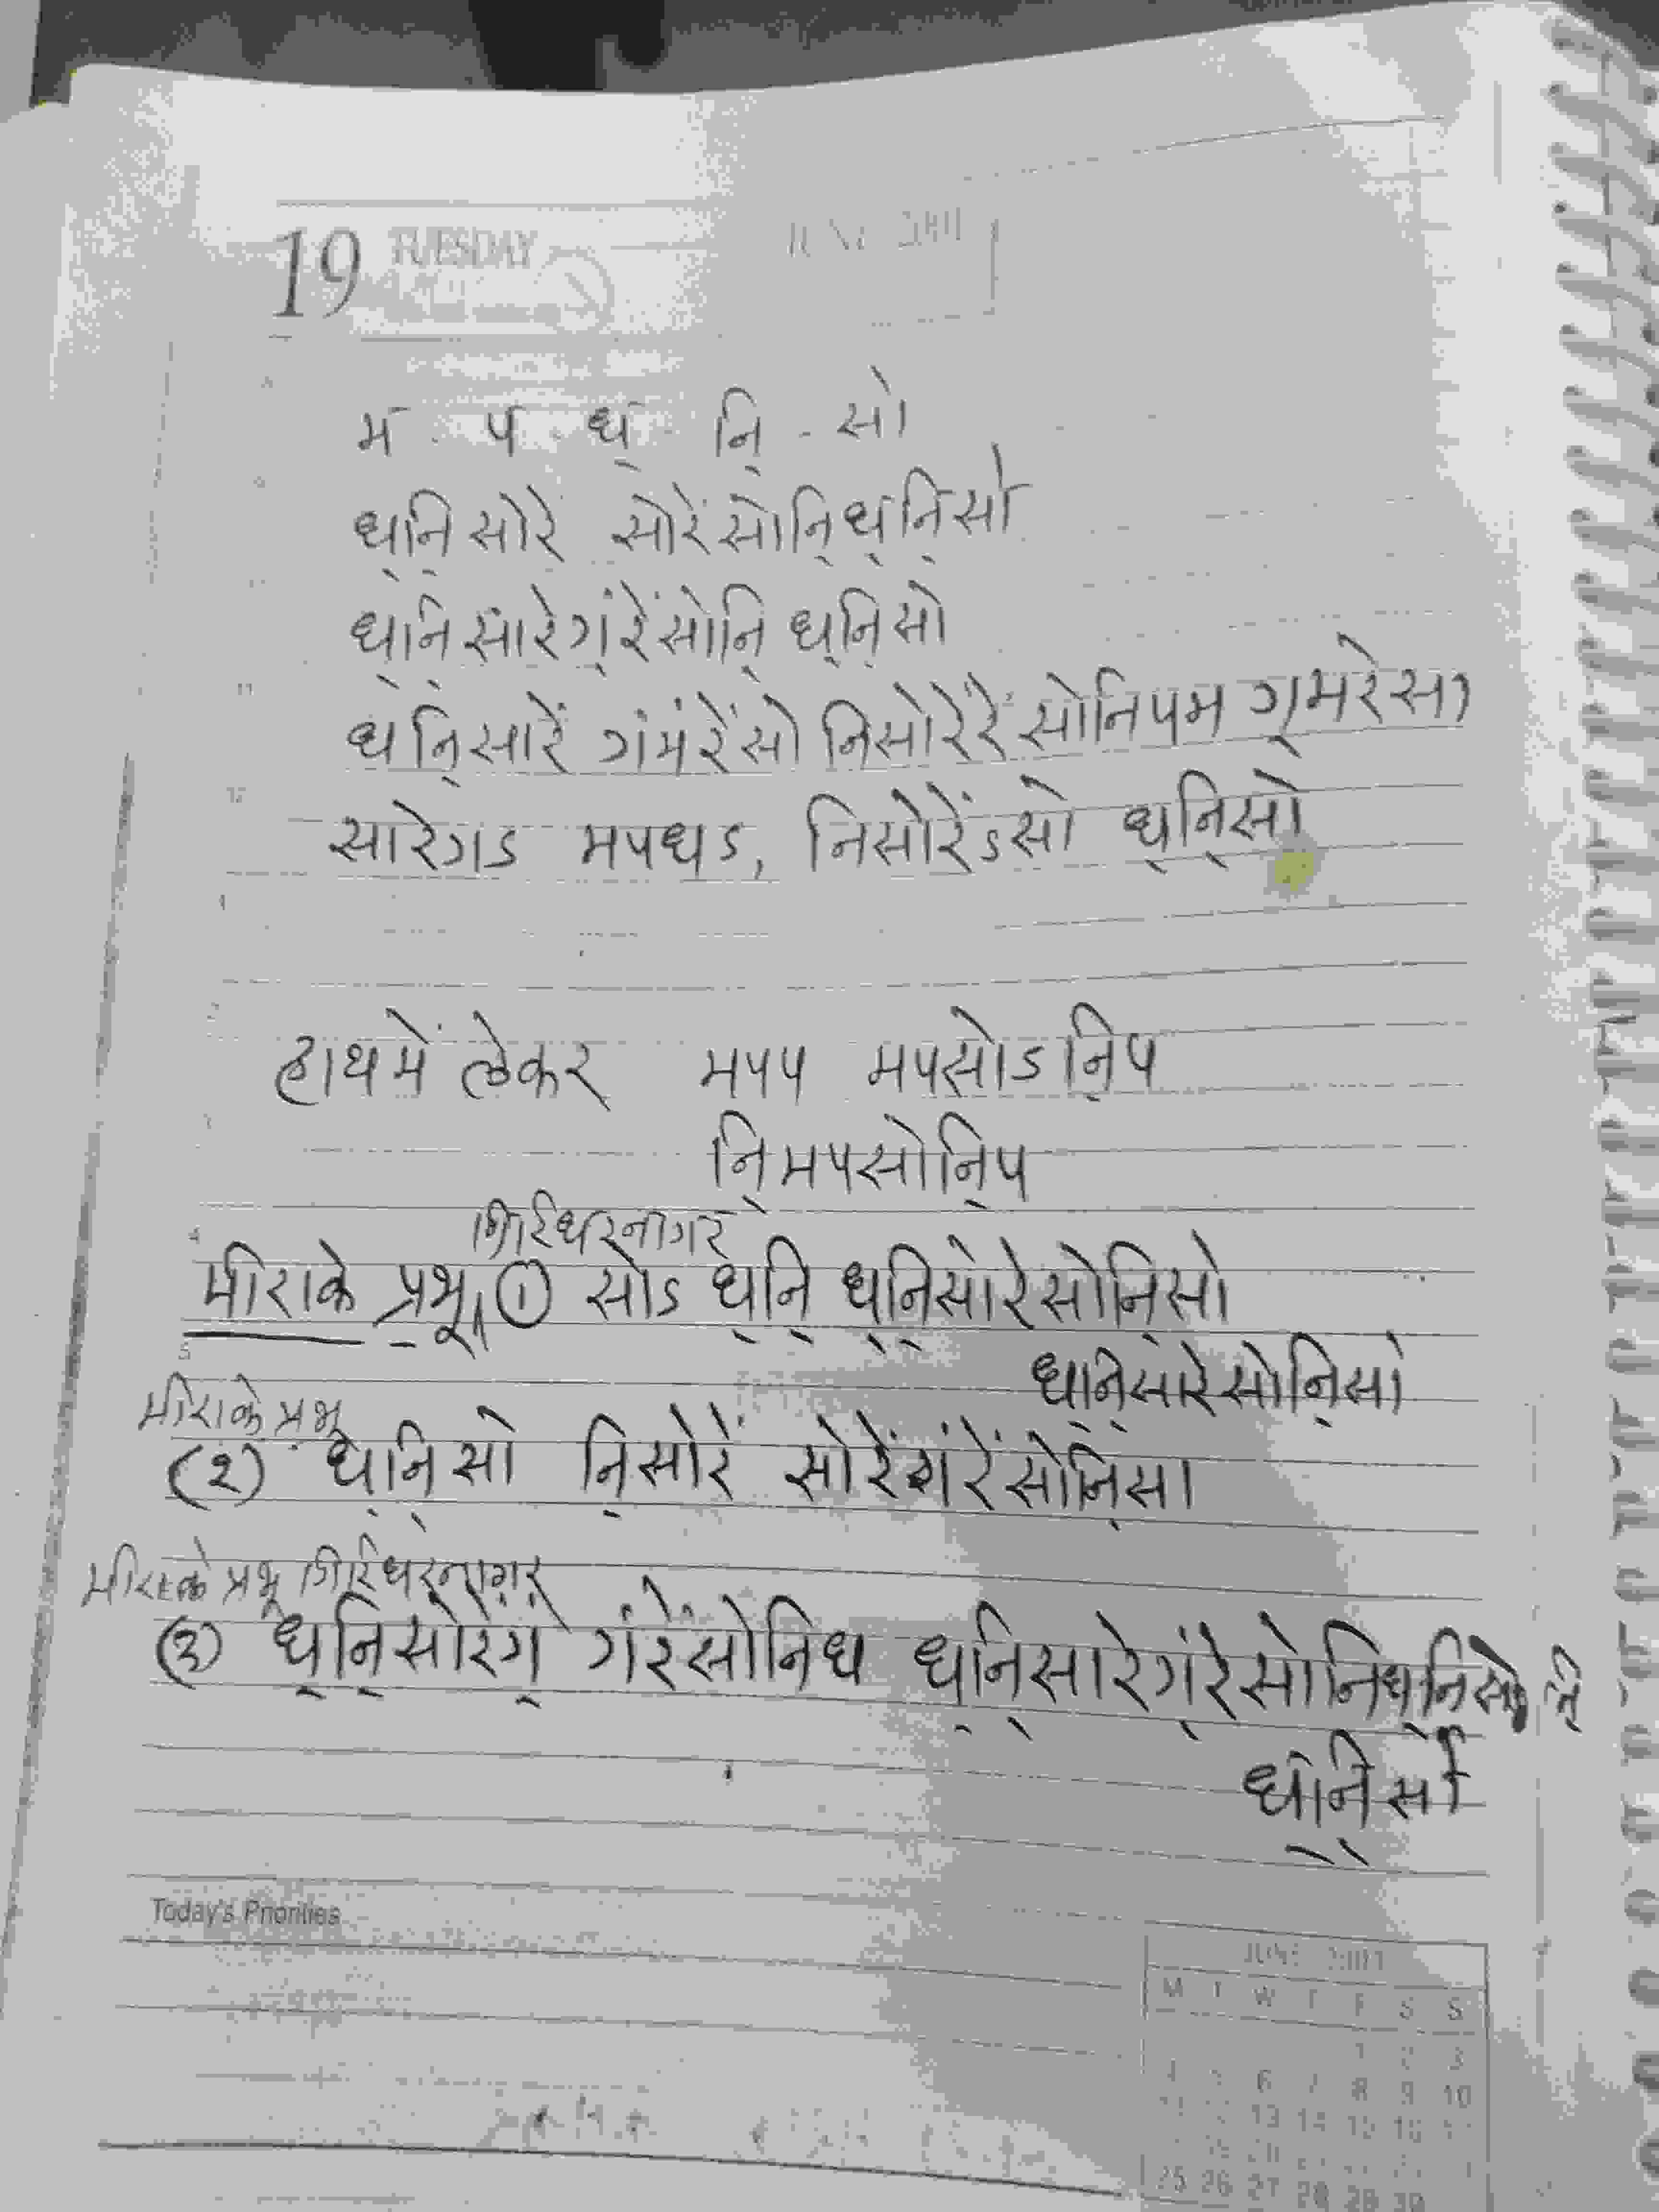 19 TUESDAY JUNE 2001
म प ध॒ नि॒ सां
ध॒नि॒सांरें सांरेंसांनि॒ध॒नि॒सां
ध॒नि॒सांरेंगं॒रेंसांनि॒ ध॒नि॒सां
धनि॒सारें गंमंरेंसां निसांरेंरेंसांनिपम ग॒मरेसा
सारेगऽ मपधऽ, निसांरेंऽसां ध॒नि॒सां
हाथ में लेकर मपप मपसांऽनि॒प
नि॒मपसांनि॒प
गिरिधरनागर
मीराके प्रभू ① सांऽ ध॒नि॒ ध॒नि॒सांरेंसांनि॒सां
ध॒नि॒सांरेंसांनि॒सां
मीराके प्रभू
(२) ध॒नि॒सां नि॒सांरें सांरेंगंरेंसांनि॒सा
मीराके प्रभू गिरिधरनागर
(३) ध॒नि॒सांरेंग॒ गंरेंसांनिध ध॒नि॒सारेगं॒रेंसांनिध॒नि॒सां
ध॒नि॒सां
Today's Priorities
JUNE 2001
M T W T F S S
1 2 3
6 7 8 9 10
13 14 15 16
25 26 27 28 29 30